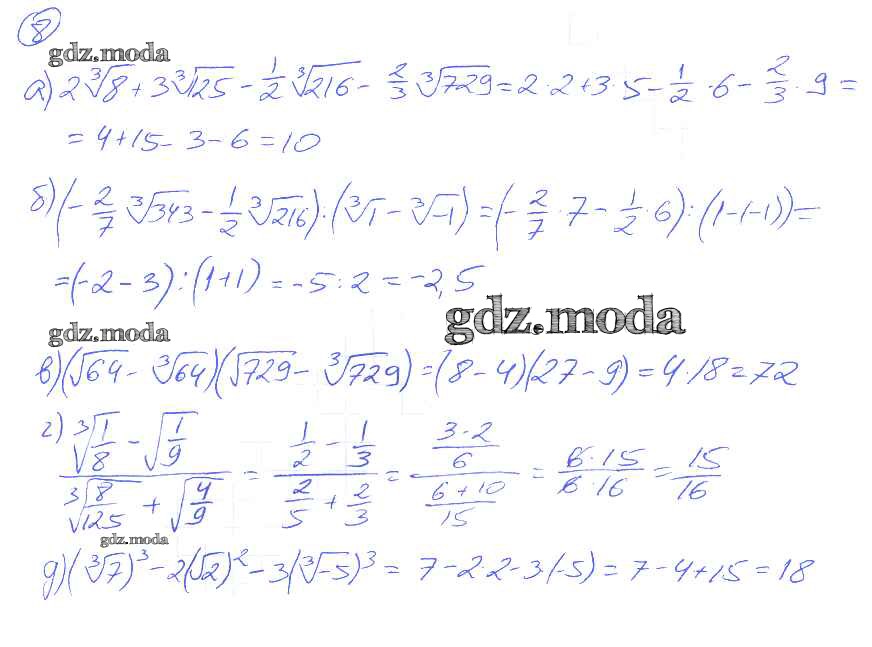 8
gdz.moda
а) 2∛8 + 3∛125 − 1/2 ∛216 − 2/3 ∛729 = 2·2 + 3·5 − 1/2 · 6 − 2/3 · 9 =
= 4 + 15 − 3 − 6 = 10
б) (− 2/7 ∛343 − 1/2 ∛216) : (∛1 − ∛−1) = (− 2/7 · 7 − 1/2 · 6) : (1 − (−1)) =
= (−2 − 3) : (1 + 1) = −5 : 2 = −2,5
gdz.moda
gdz.moda
в) (√64 − ∛64)(√729 − ∛729) = (8 − 4)(27 − 9) = 4·18 = 72
г) (∛(1/8) − √(1/9)) / (∛8/√125 + √(4/9)) = (1/2 − 1/3) / (2/5 + 2/3) = ((3-2)/6) / ((6+10)/15) = (6·15)/(6·16) = 15/16
gdz.moda
д) (∛7)³ − 2(√2)² − 3(∛−5)³ = 7 − 2·2 − 3·(−5) = 7 − 4 + 15 = 18